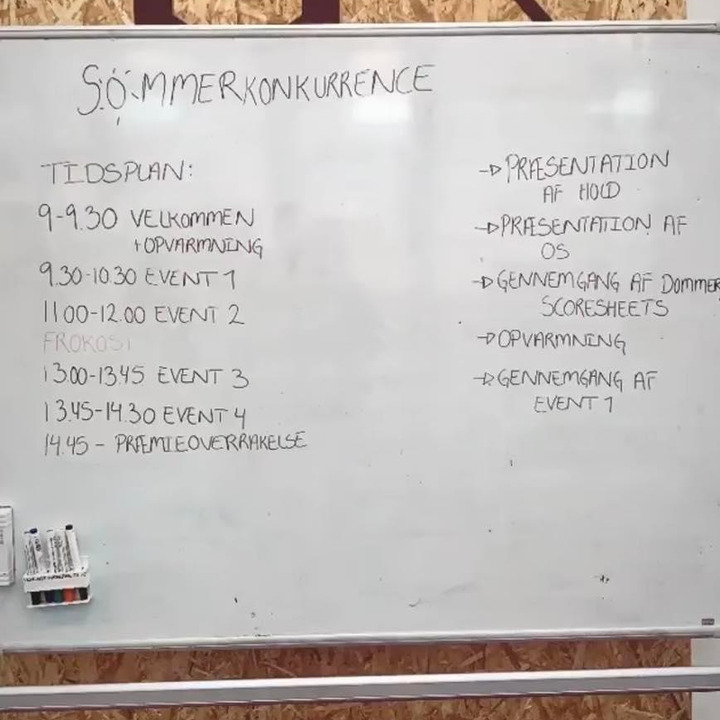 SOMMERKONKURRENCE
TIDSPLAN:
9-9.30 VELKOMMEN
+OPVARMNING
9.30-10.30 EVENT 1
11.00-12.00 EVENT 2
FROKOST
13.00-13.45 EVENT 3
13.45-14.30 EVENT 4
14.45 - PRÆMIEOVERRAKELSE
→PRÆSENTATION
AF HOLD
→PRÆSENTATION AF
OS
→GENNEMGANG AF DOMMER
SCORESHEETS
→OPVARMNING
→GENNEMGANG AF
EVENT 1